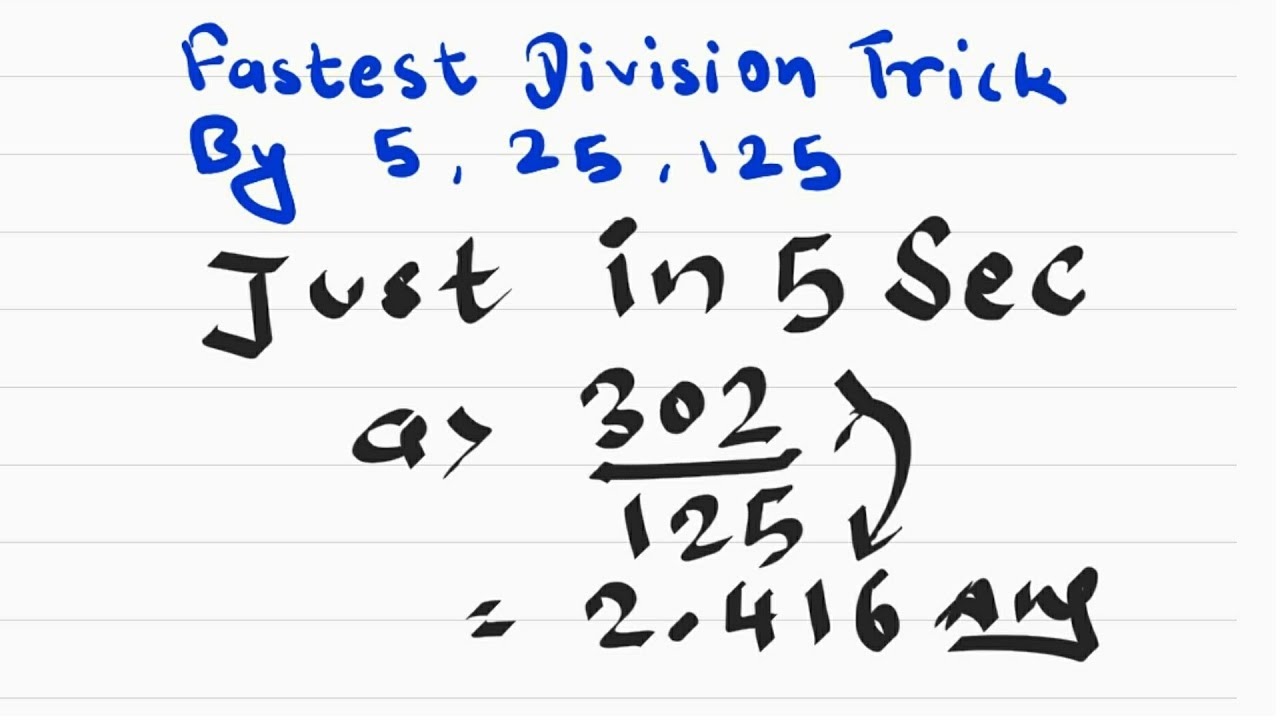 Fastest Division Trick
By 5, 25, 125
Just in 5 Sec
a> 302
125
= 2.416 Ans